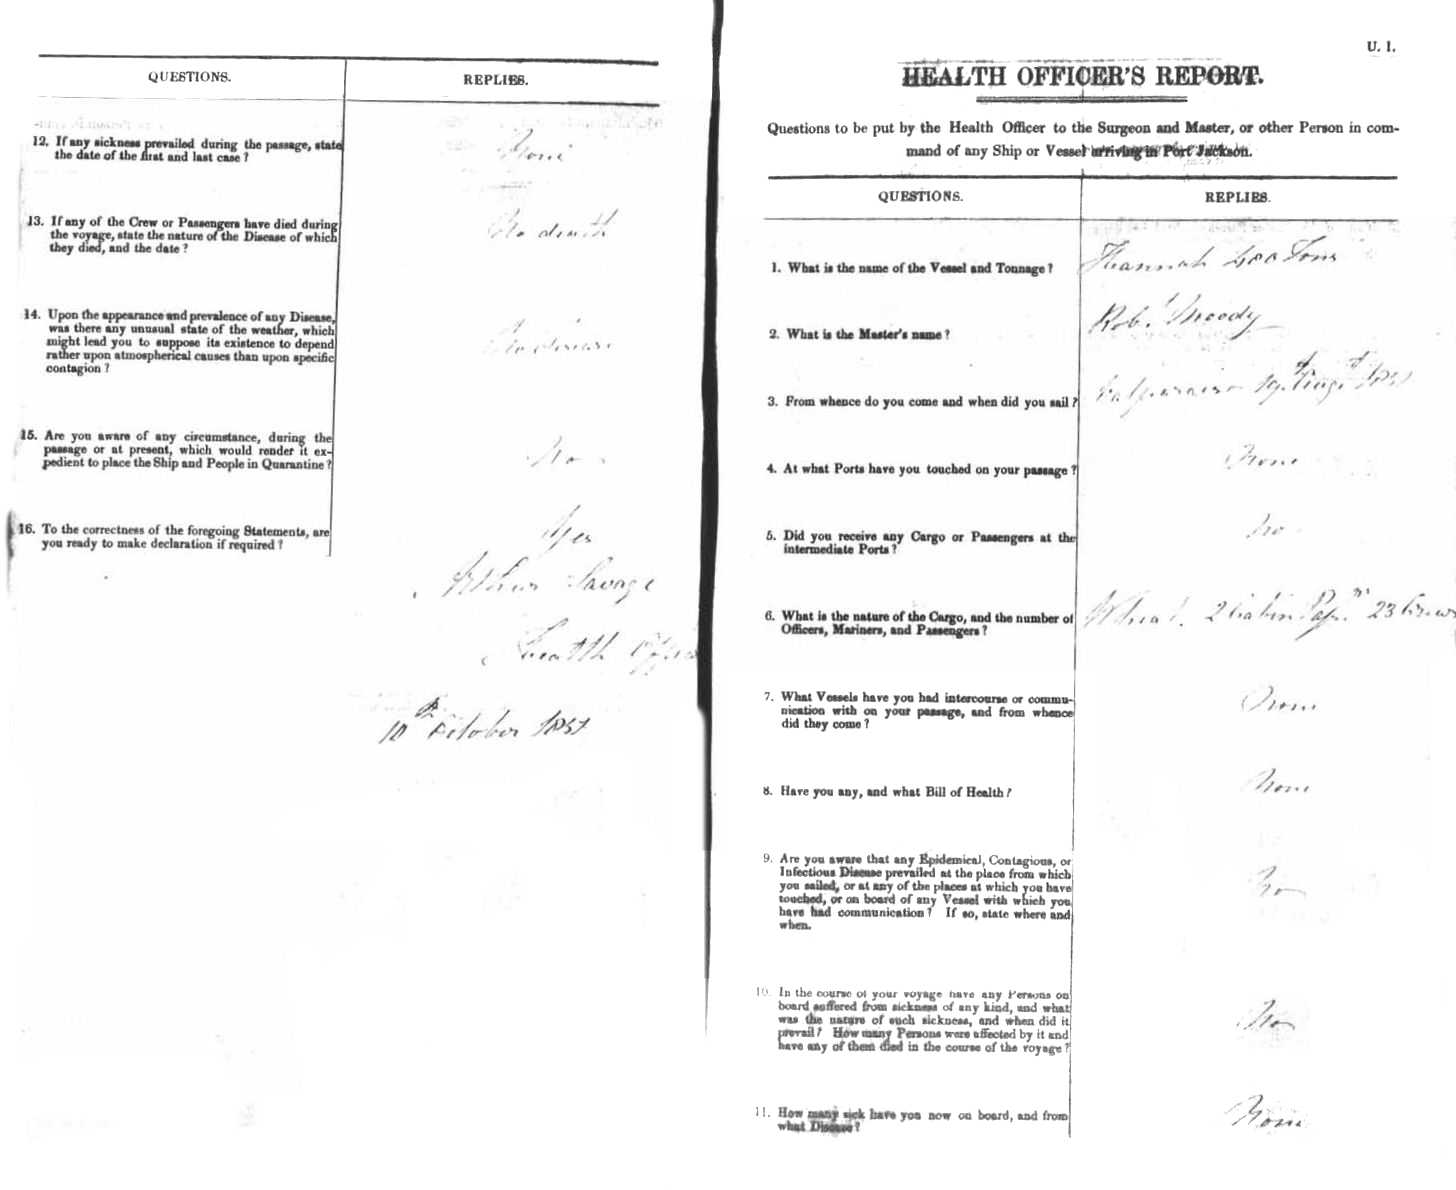 QUESTIONS.
REPLIES.
12. If any sickness prevailed during the passage, state
the date of the first and last case ?
None
13. If any of the Crew or Passengers have died during
the voyage, state the nature of the Disease of which
they died, and the date ?
No death
14. Upon the appearance and prevalence of any Disease,
was there any unusual state of the weather, which
might lead you to suppose its existence to depend
rather upon atmospherical causes than upon specific
contagion ?
No disease
15. Are you aware of any circumstance, during the
passage or at present, which would render it ex-
pedient to place the Ship and People in Quarantine ?
No
16. To the correctness of the foregoing Statements, are
you ready to make declaration if required ?
Yes
Arthur Savage
Health Officer
10th October
U. 1.
HEALTH OFFICER'S REPORT.
Questions to be put by the Health Officer to the Surgeon and Master, or other Person in com-
mand of any Ship or Vessel arriving in Port Jackson.
QUESTIONS.
REPLIES.
1. What is the name of the Vessel and Tonnage ?
Hannah 400 Tons
2. What is the Master's name ?
Robt Moody
3. From whence do you come and when did you sail ?
Valparaiso Augt
4. At what Ports have you touched on your passage ?
None
5. Did you receive any Cargo or Passengers at the
intermediate Ports ?
No
6. What is the nature of the Cargo, and the number of
Officers, Mariners, and Passengers ?
Wheat. 2 Cabin 23 Crew
7. What Vessels have you had intercourse or commu-
nication with on your passage, and from whence
did they come ?
None
8. Have you any, and what Bill of Health ?
None
9. Are you aware that any Epidemical, Contagious, or
Infectious Disease prevailed at the place from which
you sailed, or at any of the places at which you have
touched, or on board of any Vessel with which you
have had communication ? If so, state where and
when.
No
10. In the course of your voyage have any Persons on
board suffered from sickness of any kind, and what
was the nature of such sickness, and when did it
prevail ? How many Persons were affected by it and
have any of them died in the course of the voyage ?
No
11. How many sick have you now on board, and from
what Disease ?
None